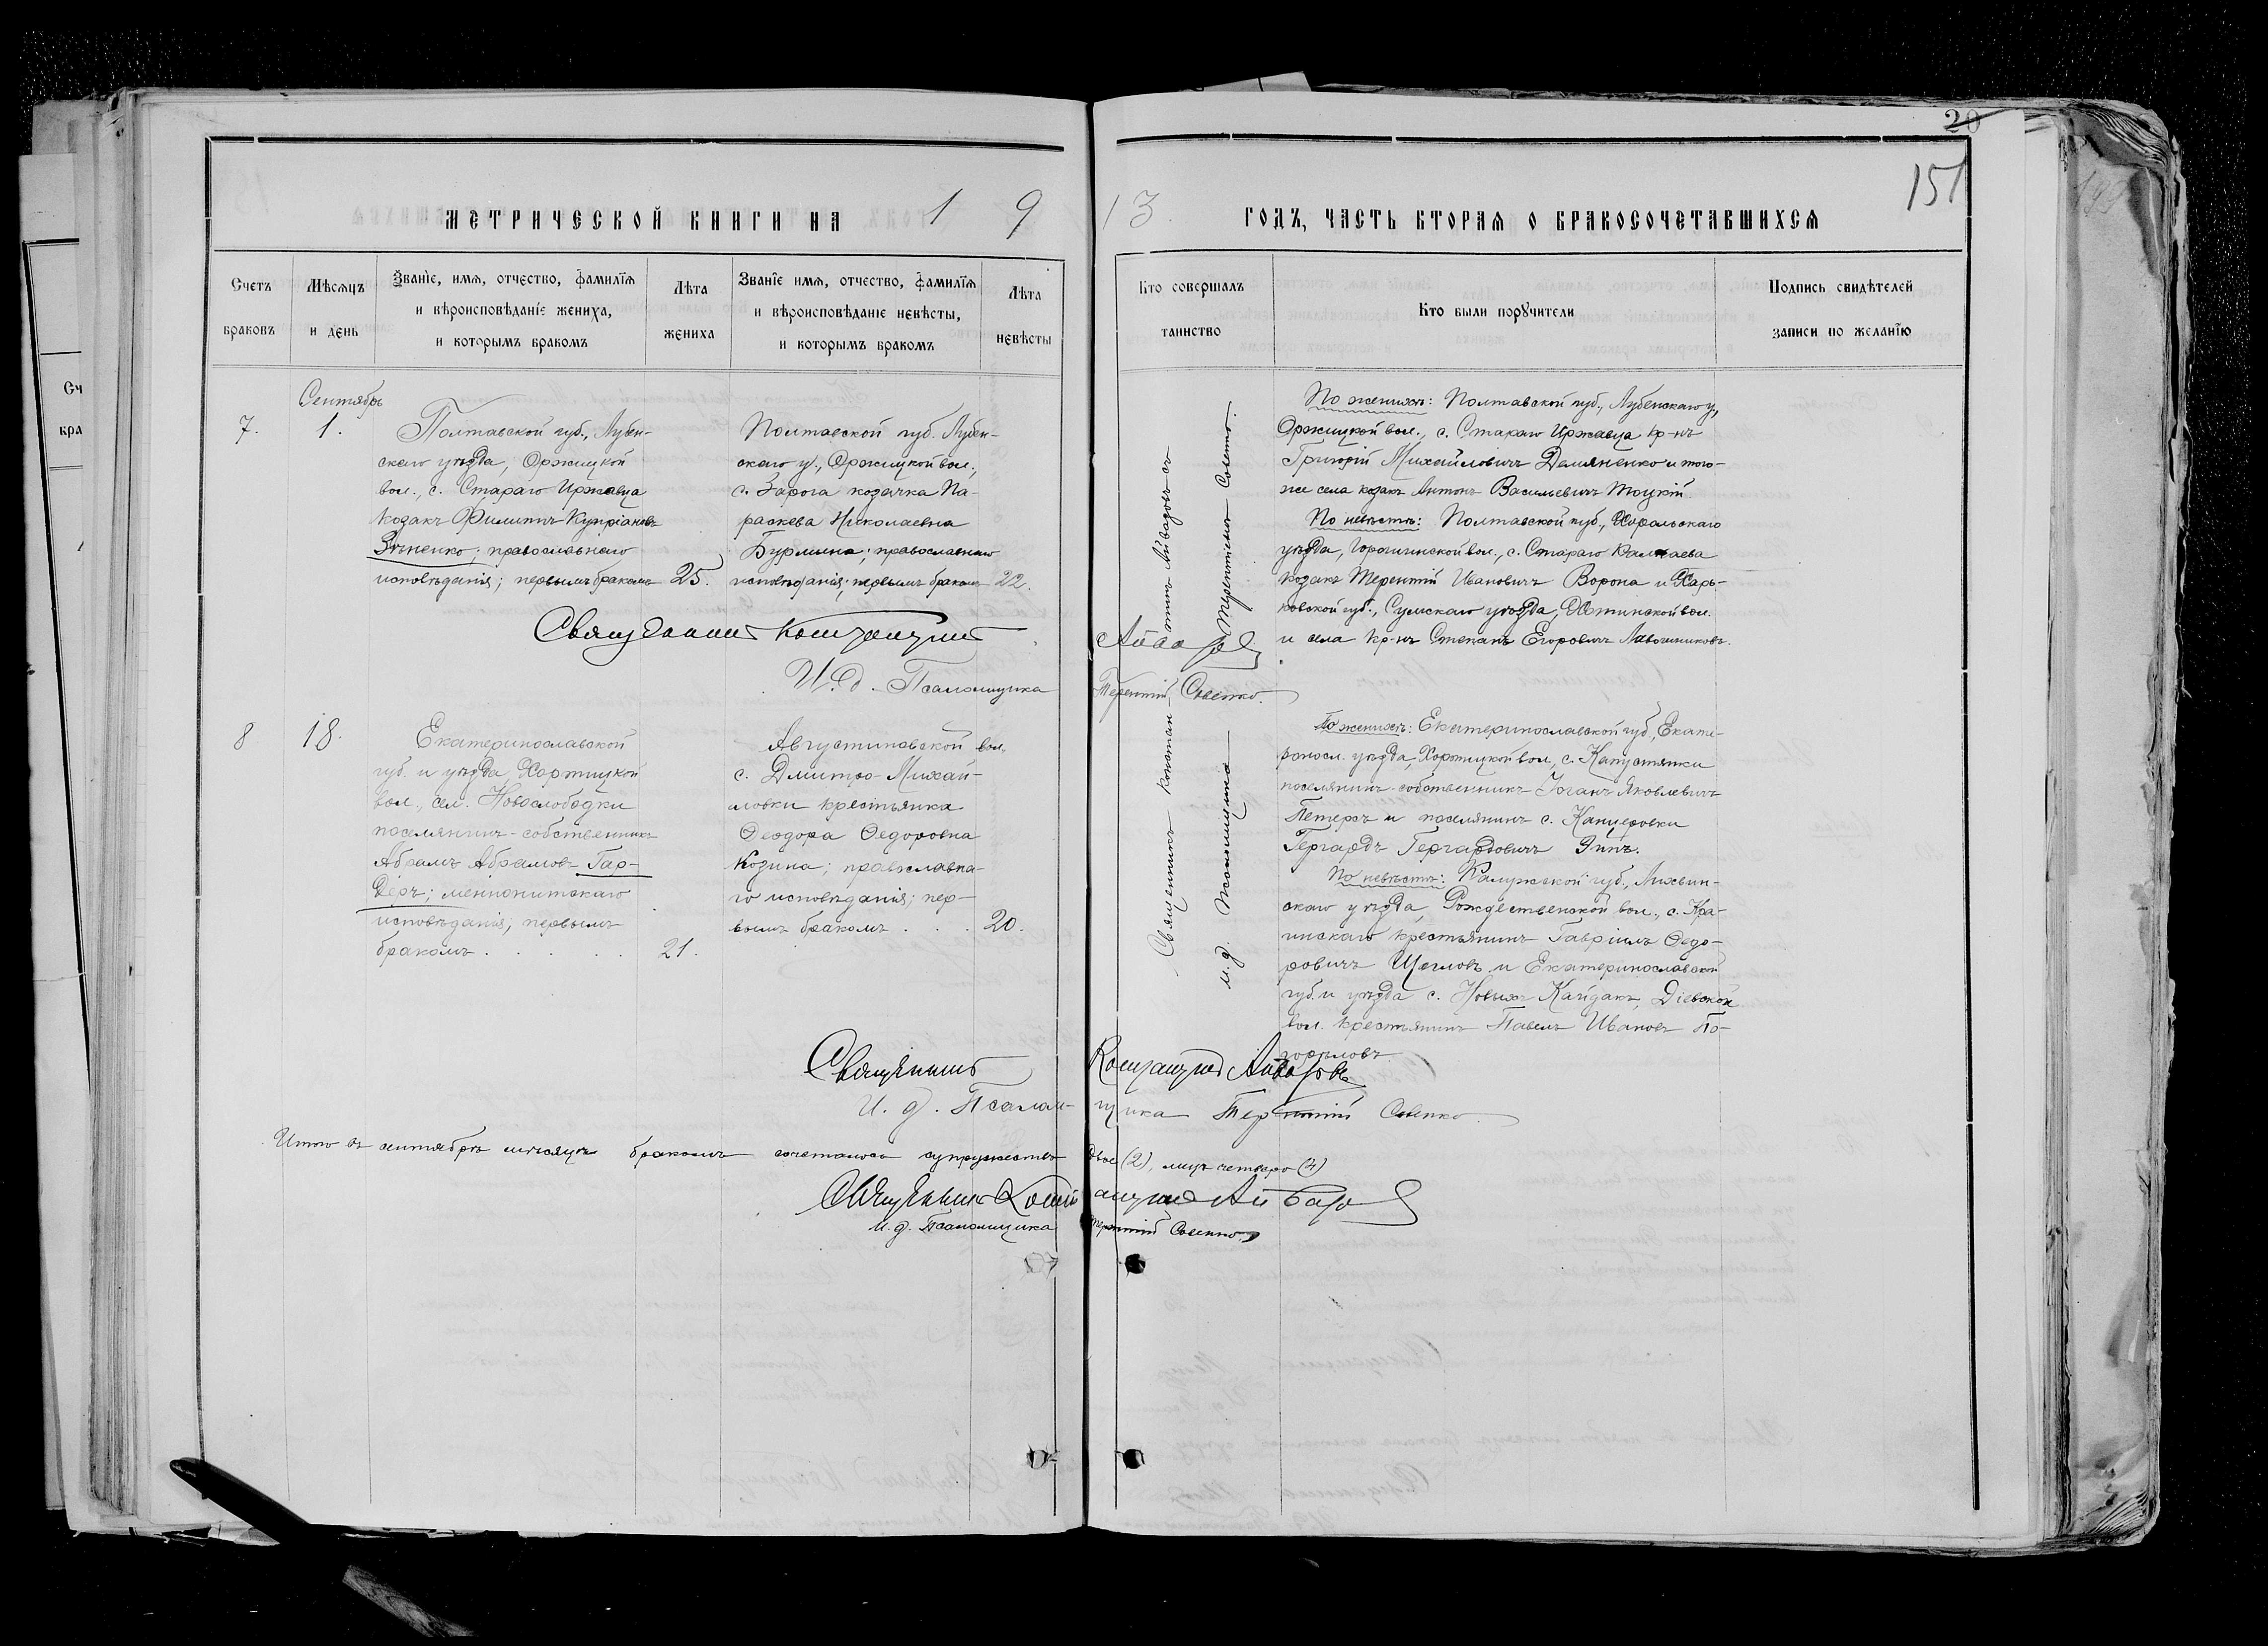 20
151
МЕТРИЧЕСКОЙ КНИГИ НА 1 9
13 ГОДЪ, ЧАСТЬ ВТОРАЯ О БРАКОСОЧЕТАВШИХСЯ
Счетъ
браковъ
Мѣсяцъ
и день
Званїе, имя, отчество, фамилїя
и вѣроисповѣданїе жениха,
и которымъ бракомъ
Лѣта
жениха
Званїе имя, отчество, фамилїя
и вѣроисповѣданїе невѣсты,
и которымъ бракомъ
Лѣта
невѣсты
Кто совершалъ
таинство
Кто были порꙋчители
Подпись свидѣтелей
записи по желанїю
Сентябрь
7. 1.
Полтавской губ., Лубен-
скаго уѣзда, Оржицкой
вол., с. Стараго Иржавца
козакъ Филиппъ Купріановъ
Зѣненко; православнаго
исповѣданія; первымъ бракомъ 25.
Полтавской губ. Лубен-
скаго у., Оржицкой вол.,
с. Зарога козачка Па-
раскева Николаевна
Бурлина; православнаго
исповѣданія; первымъ бракомъ 22.
Священникъ Константинъ
Айвазовъ
И. д. Псаломщика
Терентій Совенко.
Священникъ Константинъ Айвазовъ
и. д. Псаломщика Терентій Совенко.
По женихѣ: Полтавской губ., Лубенскаго у.,
Оржицкой вол., с. Стараго Иржавца кр-нъ
Григорій Михайловичъ Демяненко и того-
же села козакъ Антонъ Васильевичъ Тоцкій.
По невѣстѣ: Полтавской губ., Хорольскаго
уѣзда, Горошинской вол., с. Стараго
козакъ Терентій Ивановичъ Ворона и Харь-
ковской губ., Сумскаго уѣзда, Хотинской вол.
и села кр-нъ Степанъ Егоровичъ
8 18.
Екатеринославской
губ. и уѣзда, Хортицкой
вол., сел. Новослободки
поселянинъ-собственникъ
Абрамъ Абрамовъ Гар-
деръ; меннонитскаго
исповѣданія; первымъ
бракомъ . . . . . 21.
Августиновской вол.
с. Дмитро-Михай-
ловки крестьянка
Ѳеодора Ѳедоровна
Козина; православна-
го исповѣданія; пер-
вымъ бракомъ . . . 20.
По женихѣ: Екатеринославской губ., Екате-
риносл. уѣзда, Хортицкой вол., с. Капустянки
поселянинъ-собственникъ Іоганъ Яковлевичъ
Петерсъ и поселянинъ с. Канцеровки
Гергардъ Гергардовичъ Эппъ.
По невѣстѣ: Калужской губ., Лихвин-
скаго уѣзда, Рождественской вол., с. Кра-
инскаго крестьянинъ Гавріилъ Ѳедо-
ровичъ Щегловъ и Екатеринославской
губ. и уѣзда с. Новыхъ Кайдакъ, Діевской
вол. крестьянинъ Павелъ Ивановъ По-
горѣловъ
Священникъ Константинъ Айвазовъ
И. д. Псалом- щика Терентій Совенко
Итого въ сентябрѣ мѣсяцѣ бракомъ сочеталось супружествъ двое (2), лицъ четверо (4)
Священникъ Константинъ Айвазовъ
И. д. Псаломщика Терентій Совенко